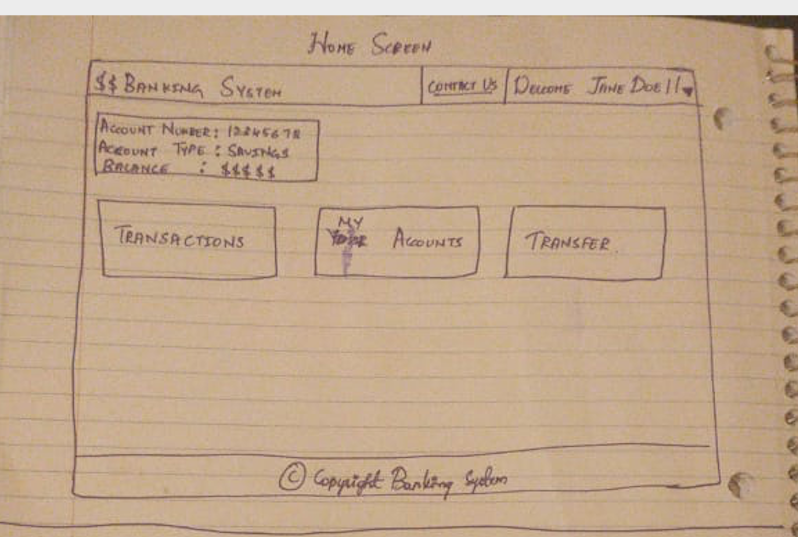 HOME SCREEN
$$ BANKING SYSTEM CONTACT US WELCOME JANE DOE!!
ACCOUNT NUMBER: 12345678
ACCOUNT TYPE: SAVINGS
BALANCE : $$$$$
TRANSACTIONS MY ACCOUNTS TRANSFER
© Copyright Banking System